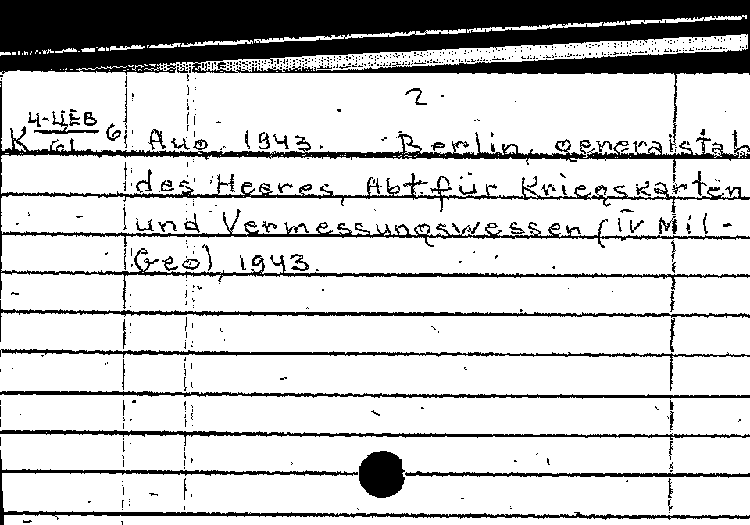 2.
К 4-ЦЕВ 6 Aug. 1943. Berlin, generalstab
des Heeres, Abt für Kriegskarten
und Vermessungswessen (IV Mil-
Geo), 1943.